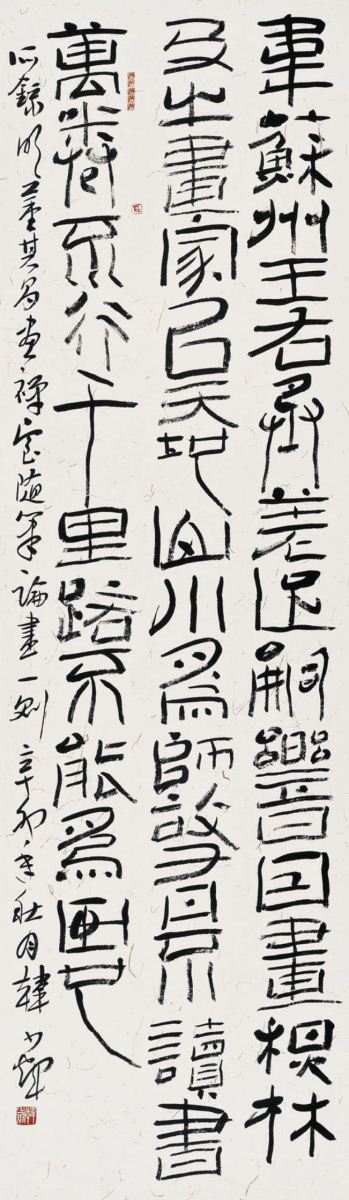 韋蘇州王右丞差足嗣響因畫楓林
及之畫家以天地山川為師曰不讀書
萬卷不行千里路不能為畫也
錄明董其昌畫禪室隨筆論畫一則辛卯年壯月韓少輝